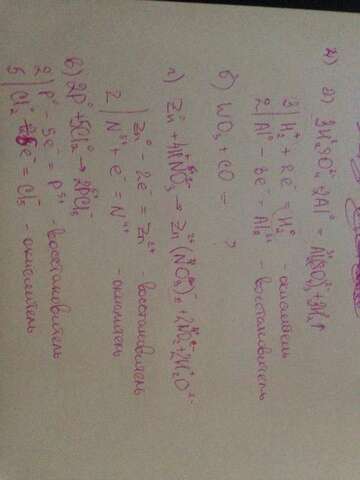 2) а) 3H₂SO₄ + 2Al⁰ = Al₂(SO₄)₃ + 3H₂↑
3 | H₂⁺ + 2e⁻ = H₂⁰ - окислитель
2 | Al⁰ - 3e⁻ = Al³⁺ - восстановитель
б) WO₃ + CO → ?
г) Zn⁰ + 4HNO₃ → Zn(NO₃)₂ + 2NO₂ + 2H₂O
Zn⁰ - 2e⁻ = Zn²⁺ - восстановитель
2 | N⁵⁺ + e⁻ = N⁴⁺ - окислитель
в) 2P⁰ + 5Cl₂⁰ → 2PCl₅
2 | P⁰ - 5e⁻ = P⁵⁺ - восстановитель
5 | Cl₂⁰ + 2e⁻ = Cl⁻ - окислитель